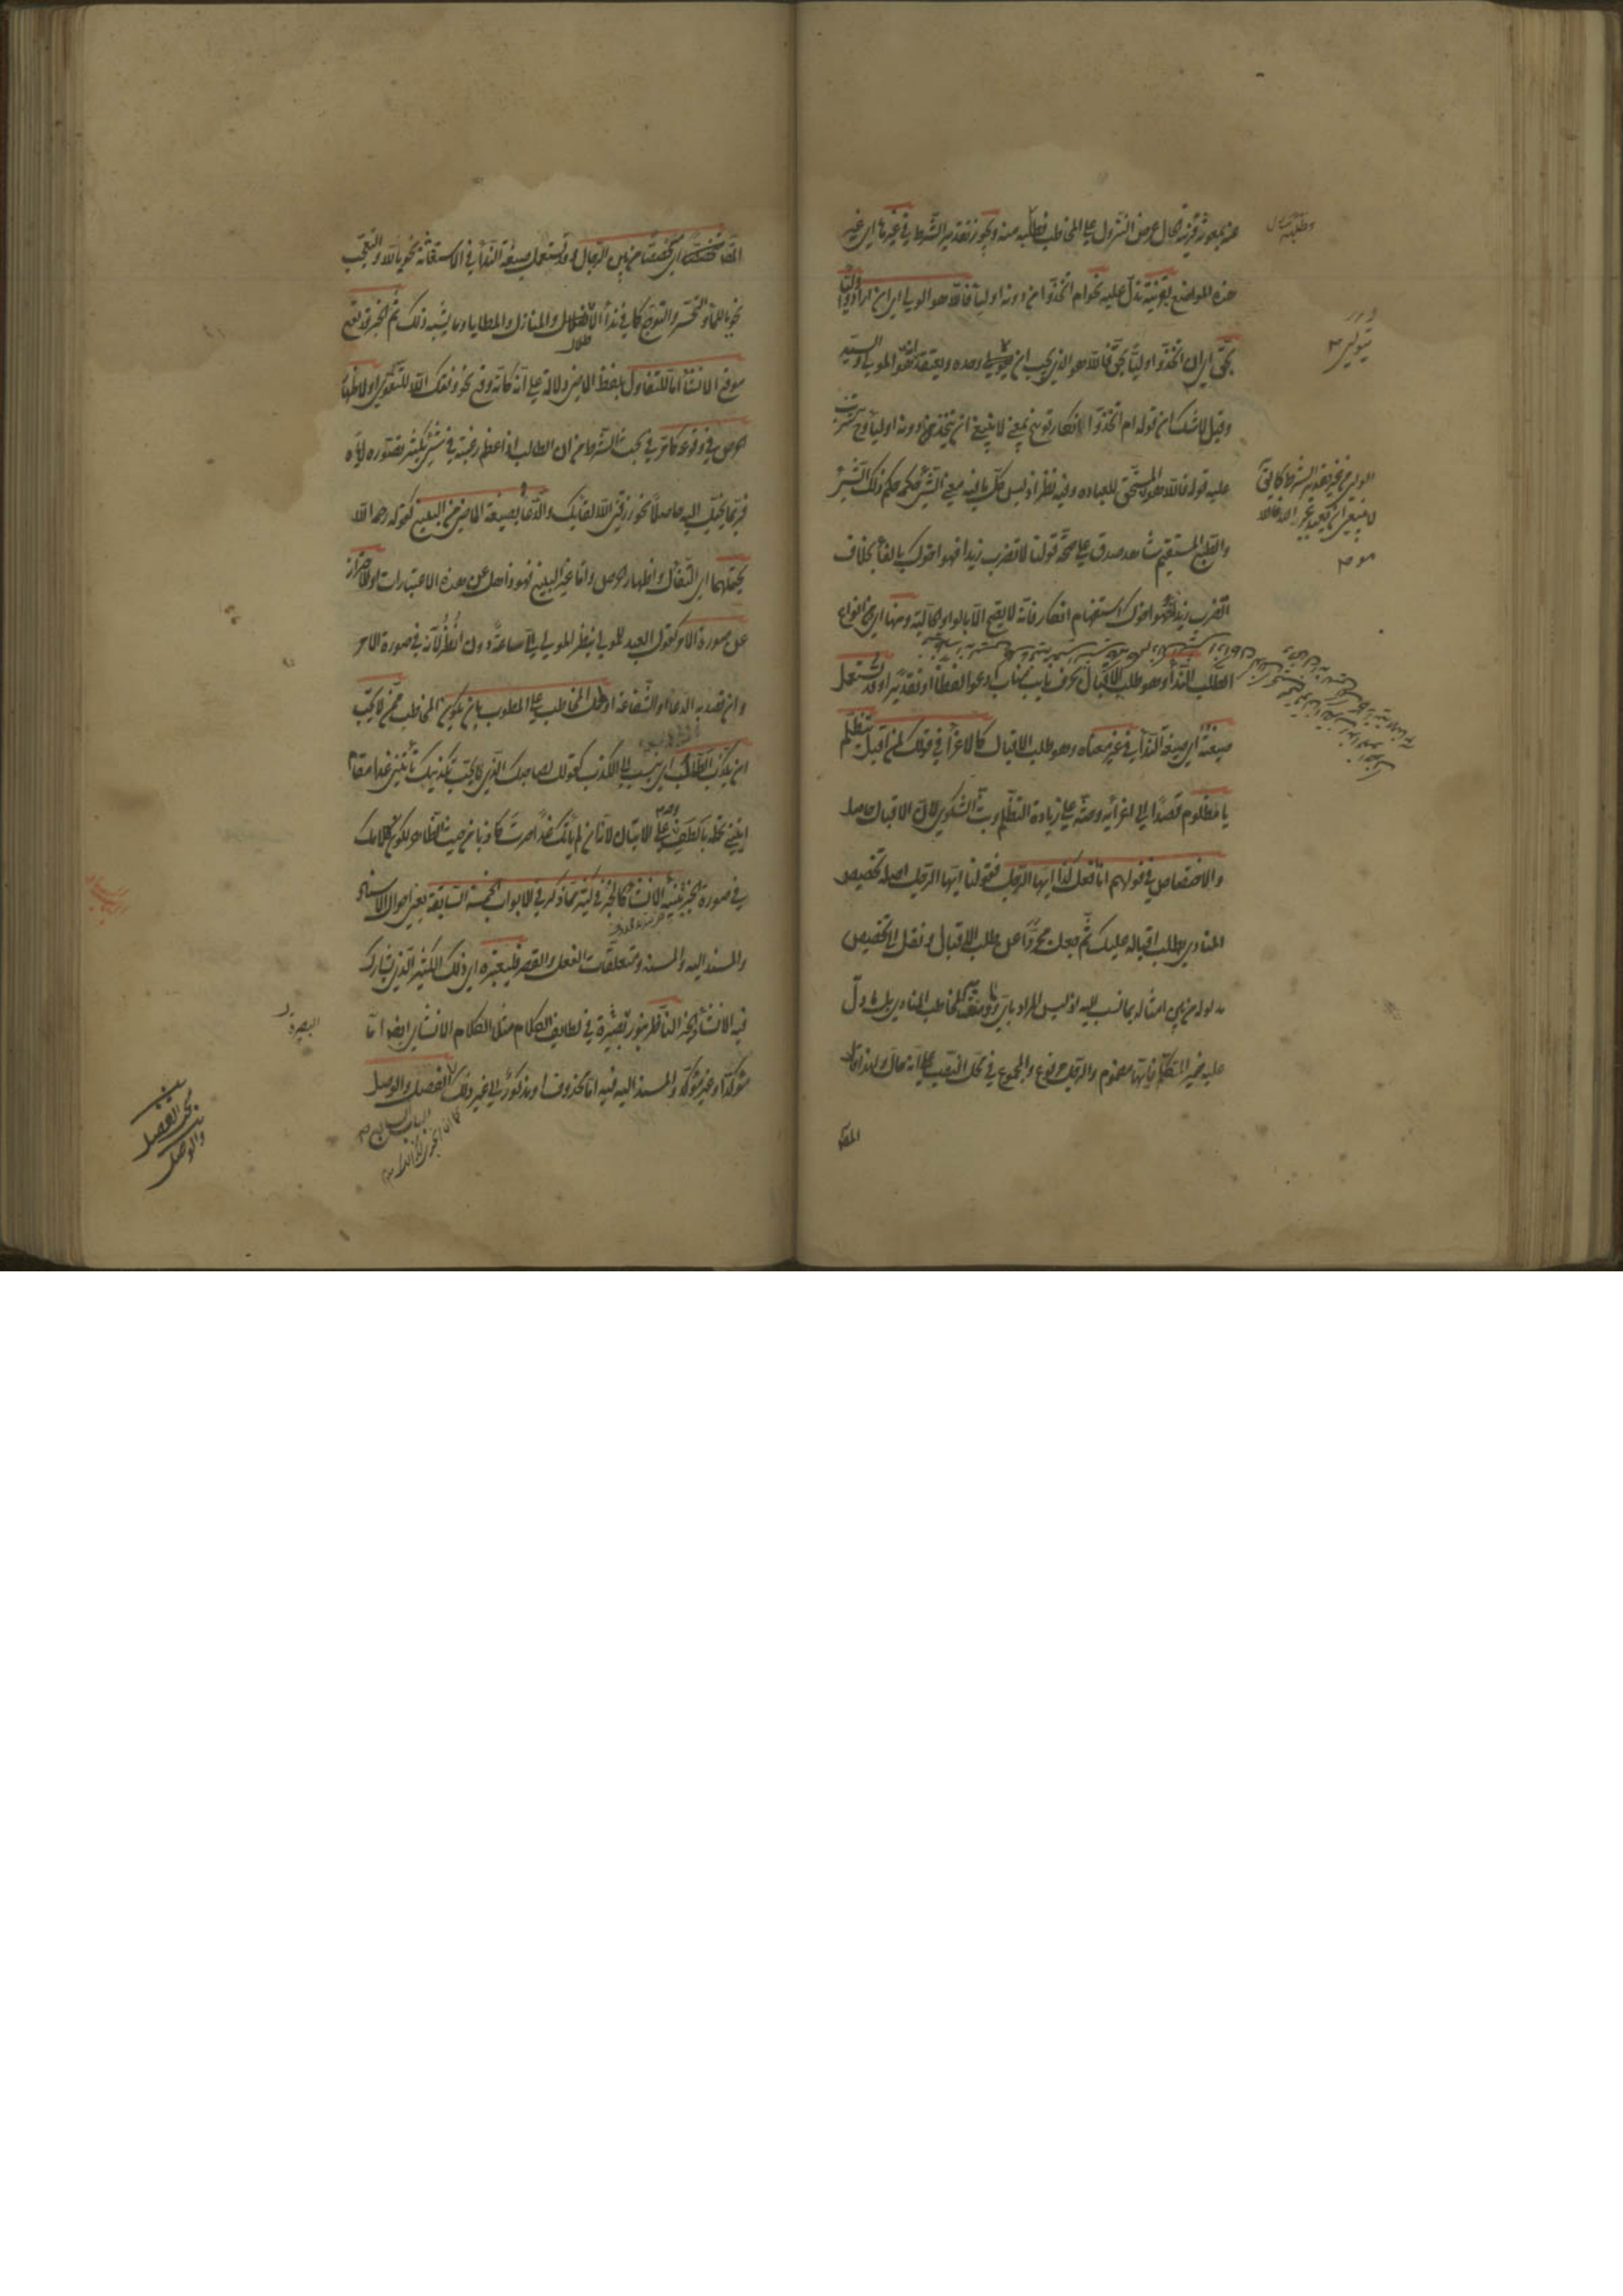 عنه بمعونة قرينة الحال عرض النزول على المخاطب وطلبه منه ويجوز تقدير الشرط في غيرها اي غير
هذه المواضع بقرينة تدل عليه نحو ام اتخذوا من دونه اولياء فالله هو الولي اي ان ارادوا وليا
بحق اي ان اتخذوا اولياء بحق فالله هو الذي يجب ان يتولى وحده ويعتقد انه المولى والسيد
وقيل لا شك ان قوله ام اتخذوا الانكار توبيخ بمعنى لا ينبغي ان يتخذ من دونه اولياء وح يترتب
عليه قوله فالله هو المستحق للعباده وفيه نظر اذ ليس كل ما فيه معنى الشئ حكمه حكم ذلك الشئ
والطبع المستقيم شاهد صدق على صحة قولنا لا تضرب زيدا فهو اخوك بالفاء بخلاف
اتضرب زيدا فهو اخوك استفهام انكار فانه لا يصح الا بالواو الحالية ومنها اي من انواع
الطلب النداء وهو طلب الاقبال بحرف نايب مناب ادعو لفظا او تقديرا وقد تستعمل
صيغته اي صيغة النداء في غير معناه وهو طلب الاقبال كالاغراء في قولك لمن اقبل يتظلم
يا مظلوم قصدا الى اغرائه وحثه على زيادة التظلم وبث الشكوى لان الاقبال حاصل
والاختصاص في قولهم انا افعل كذا ايها الرجل فقولنا ايها الرجل اصله تخصيص
المنادى بطلب اقباله عليك ثم جعل مجردا عن طلب الاقبال ونقل الى تخصيص
مدلوله من بين امثاله بما نسب اليه اذ ليس المراد باي ووصفه المخاطب المنادى بل ما دل
عليه ضمير المتكلم فايها مضموم والرجل مرفوع والمجموع في محل النصب على انه حال ولهذا قال
المص
وطلبه
يتولى
متخصصا اي مختصا من بين الرجال وقد تستعمل صيغة النداء في الاستغاثة نحو يا لله والتعجب
نحو يا للماء والتحسر والتوجع كما في نداء الاطلال والمنازل والمطايا وما يشبه ذلك ثم الخبر قد يقع
موقع الانشاء اما للتفاؤل بلفظ الماضي دلالة على انه كانه وقع نحو وفقك الله للتقوى او لاظهار
الحرص في وقوعه كما مر في بحث الشرط من ان الطالب اذا عظم رغبته في شئ يكثر تصوره اياه
فربما يخيل اليه حاصلا نحو رزقني الله لقائك والدعاء بصيغة الماضي من البليغ كقوله رحمه الله
يحتملهما اي التفاؤل واظهار الحرص واما غير البليغ فهو ذاهل عن هذه الاعتبارات او للاحتراز
عن صورة الامر كقول العبد للمولى ينظر المولى الي ساعة دون انظر لانه في صورة الامر
وان قصد به الدعاء او الشفاعة او لحمل المخاطب على المطلوب بان يكون المخاطب ممن لا يحب
ان يكذب الطالب اي ينسب الى الكذب كقولك لصاحبك الذي لا يحب تكذيبك تأتيني غدا مقام
ائتني تحمله بالطف وجه على الاتيان لانه ان لم ياتك غدا صرت كاذبا من حيث الظاهر لكون كلامك
في صورة الخبر تنبيه الانشاء كالخبر في كثير مما ذكر في الابواب الخمسة السابقة يعني احوال الاسناد
والمسند اليه والمسند ومتعلقات الفعل والقصر فليعتبره اي ذلك الكثير الذي يشارك
فيه الانشاء الخبر الناظر بنور البصيرة في لطايف الكلام مثلا الكلام الانشائي ايضا اما
مؤكد او غير مؤكد والمسند اليه فيه اما محذوف او مذكور الى غير ذلك الفصل والوصل
البصيرة
بحث الفصل
والوصل